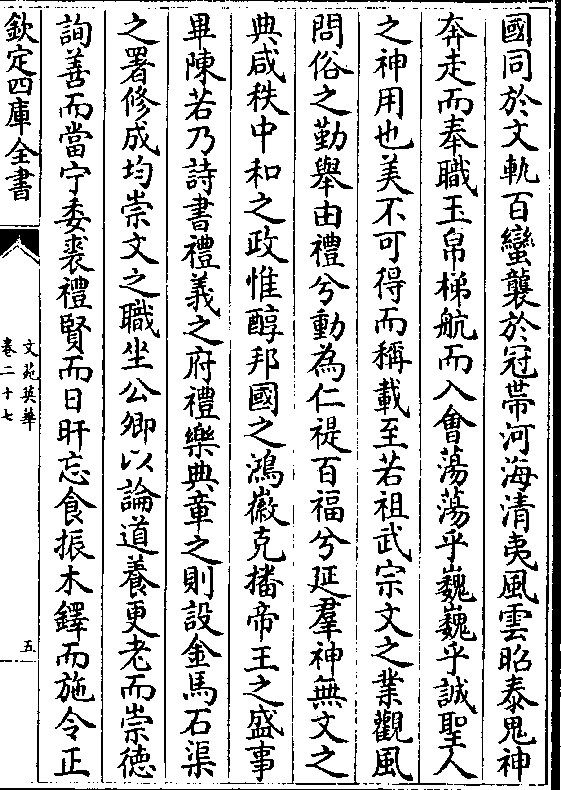 國同於文軌百蠻襲於冠帶河海清夷風雲昭泰鬼神
奔走而奉職玉帛梯航而入會蕩蕩乎巍巍乎誠聖人
之神用也美不可得而稱載至若祖武宗文之業觀風
問俗之勤舉由禮兮動為仁禔百福兮延羣神無文之
典咸秩中和之政惟醇邦國之鴻徽克播帝王之盛事
畢陳若乃詩書禮義之府禮樂典章之則設金馬石渠
之署修成均崇文之職坐公卿以論道養更老而崇德
詢善而當宁委裘禮賢而日旰忘食振木鐸而施令正
欽定四庫全書
文苑英華
卷二十七
五